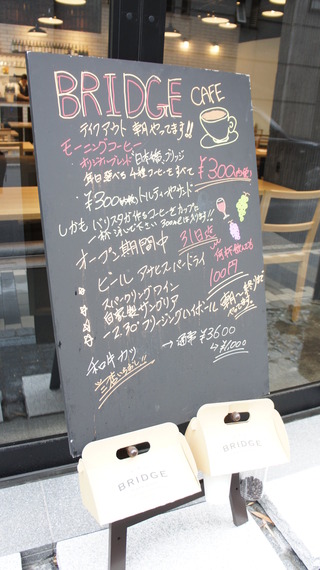 BRIDGE CAFE
テイクアウト 朝やってます!!
モーニングコーヒー
オリジナルブレンド「日本橋」ブリッジ
毎日選べる4種コーヒーすべて ¥300
・¥300 トルティーヤサンド
しかも バリスタが作るコーヒーをカップに
オープン期間中 31日迄
ビール アサヒスーパードライ
何杯飲んでも
100円
スパークリングワイン
自家製サングリア
-2.30 フリージングハイボール
和牛カツ → 通常 ¥3600
→ ¥1,000
BRIDGE
BRIDGE